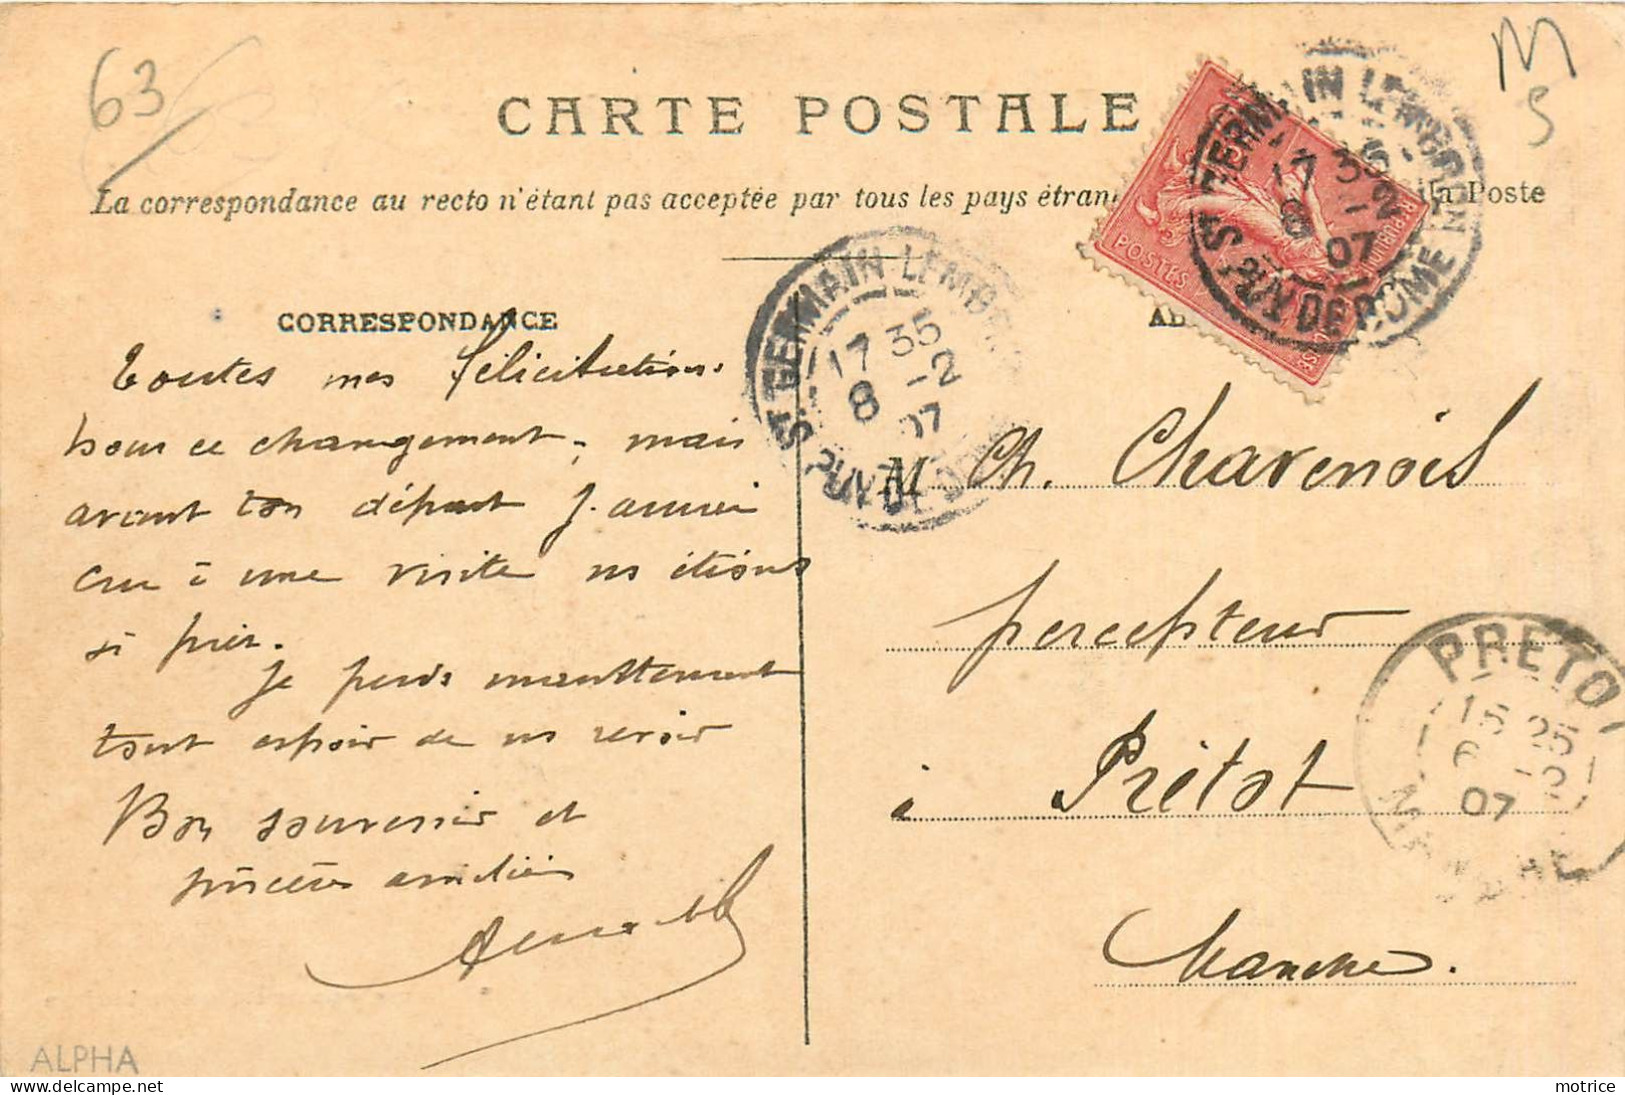 63
M
S
CARTE POSTALE
La correspondance au recto n'étant pas acceptée par tous les pays étran la Poste
CORRESPONDANCE
Toutes mes félicitations
pour ce changement, mais
avant ton départ j'aurais
cru à une visite ns étions
si près.
Je perds maintenant
tout espoir de ns revoir
Bon souvenir et
sincères amitiés
ST GERMAIN LEMBRON
17 35
8 -2
07
PUY DE DOME
POSTES
ST GERMAIN LEMBRON
17 35
8 -2
07
PUY DE DOME
M Ch. Charenois
percepteur
à Prétot
Manche.
PRETOT
15 25
-2
07
MANCHE
ALPHA
motrice